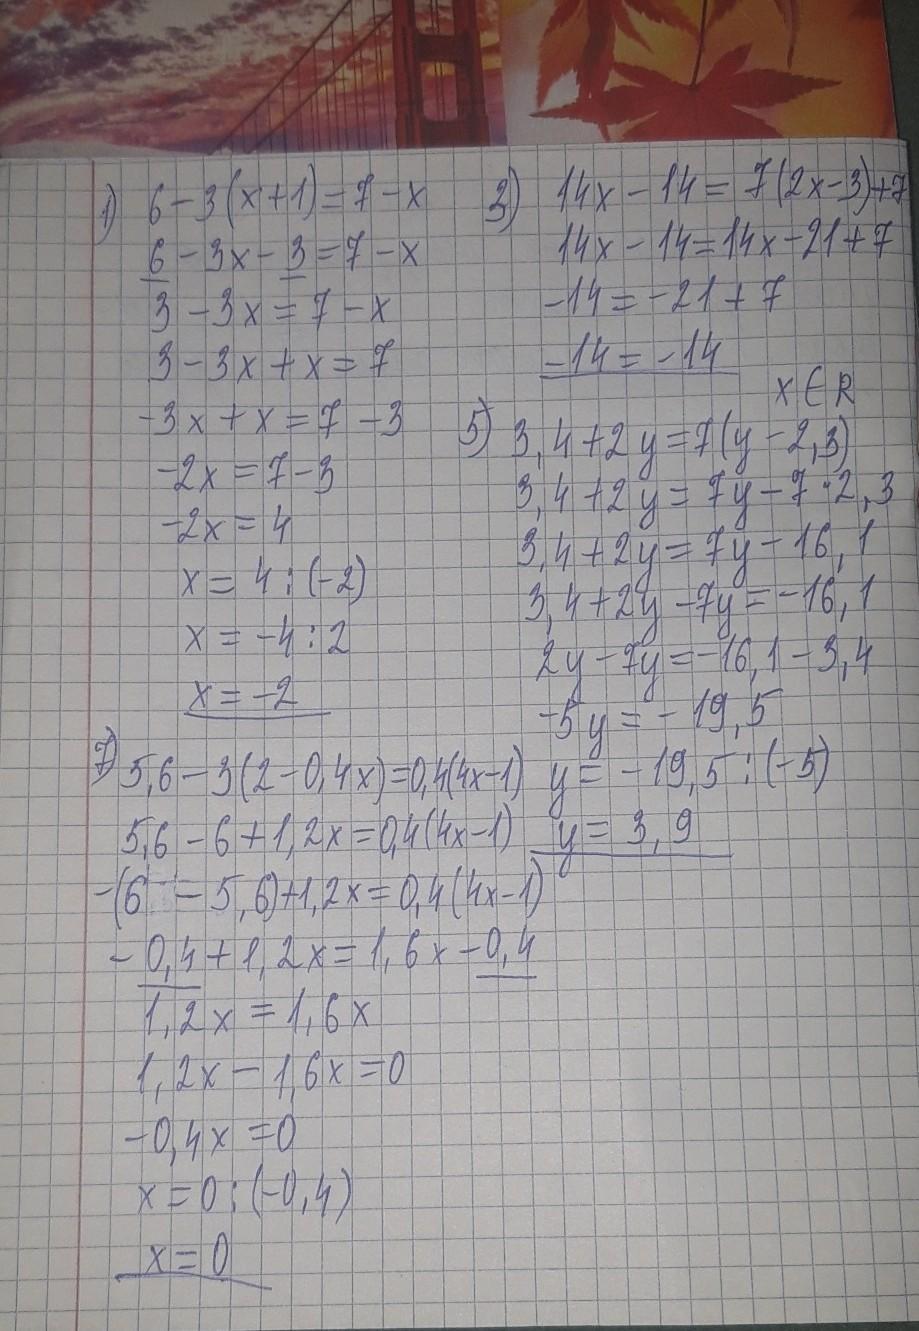 1) 6-3(x+1)=7-x
6-3x-3=7-x
3-3x=7-x
3-3x+x=7
-3x+x=7-3
-2x=7-3
-2x=4
x=4:(-2)
x=-4:2
x=-2
3) 14x-14=7(2x-3)+7
14x-14=14x-21+7
-14=-21+7
-14=-14
x∈R
5) 3,4+2y=7(y-2,3)
3,4+2y=7y-7·2,3
3,4+2y=7y-16,1
3,4+2y-7y=-16,1
2y-7y=-16,1-3,4
-5y=-19,5
y=-19,5:(-5)
y=3,9
7) 5,6-3(2-0,4x)=0,4(4x-1)
5,6-6+1,2x=0,4(4x-1)
-(6-5,6)+1,2x=0,4(4x-1)
-0,4+1,2x=1,6x-0,4
1,2x=1,6x
1,2x-1,6x=0
-0,4x=0
x=0:(-0,4)
x=0